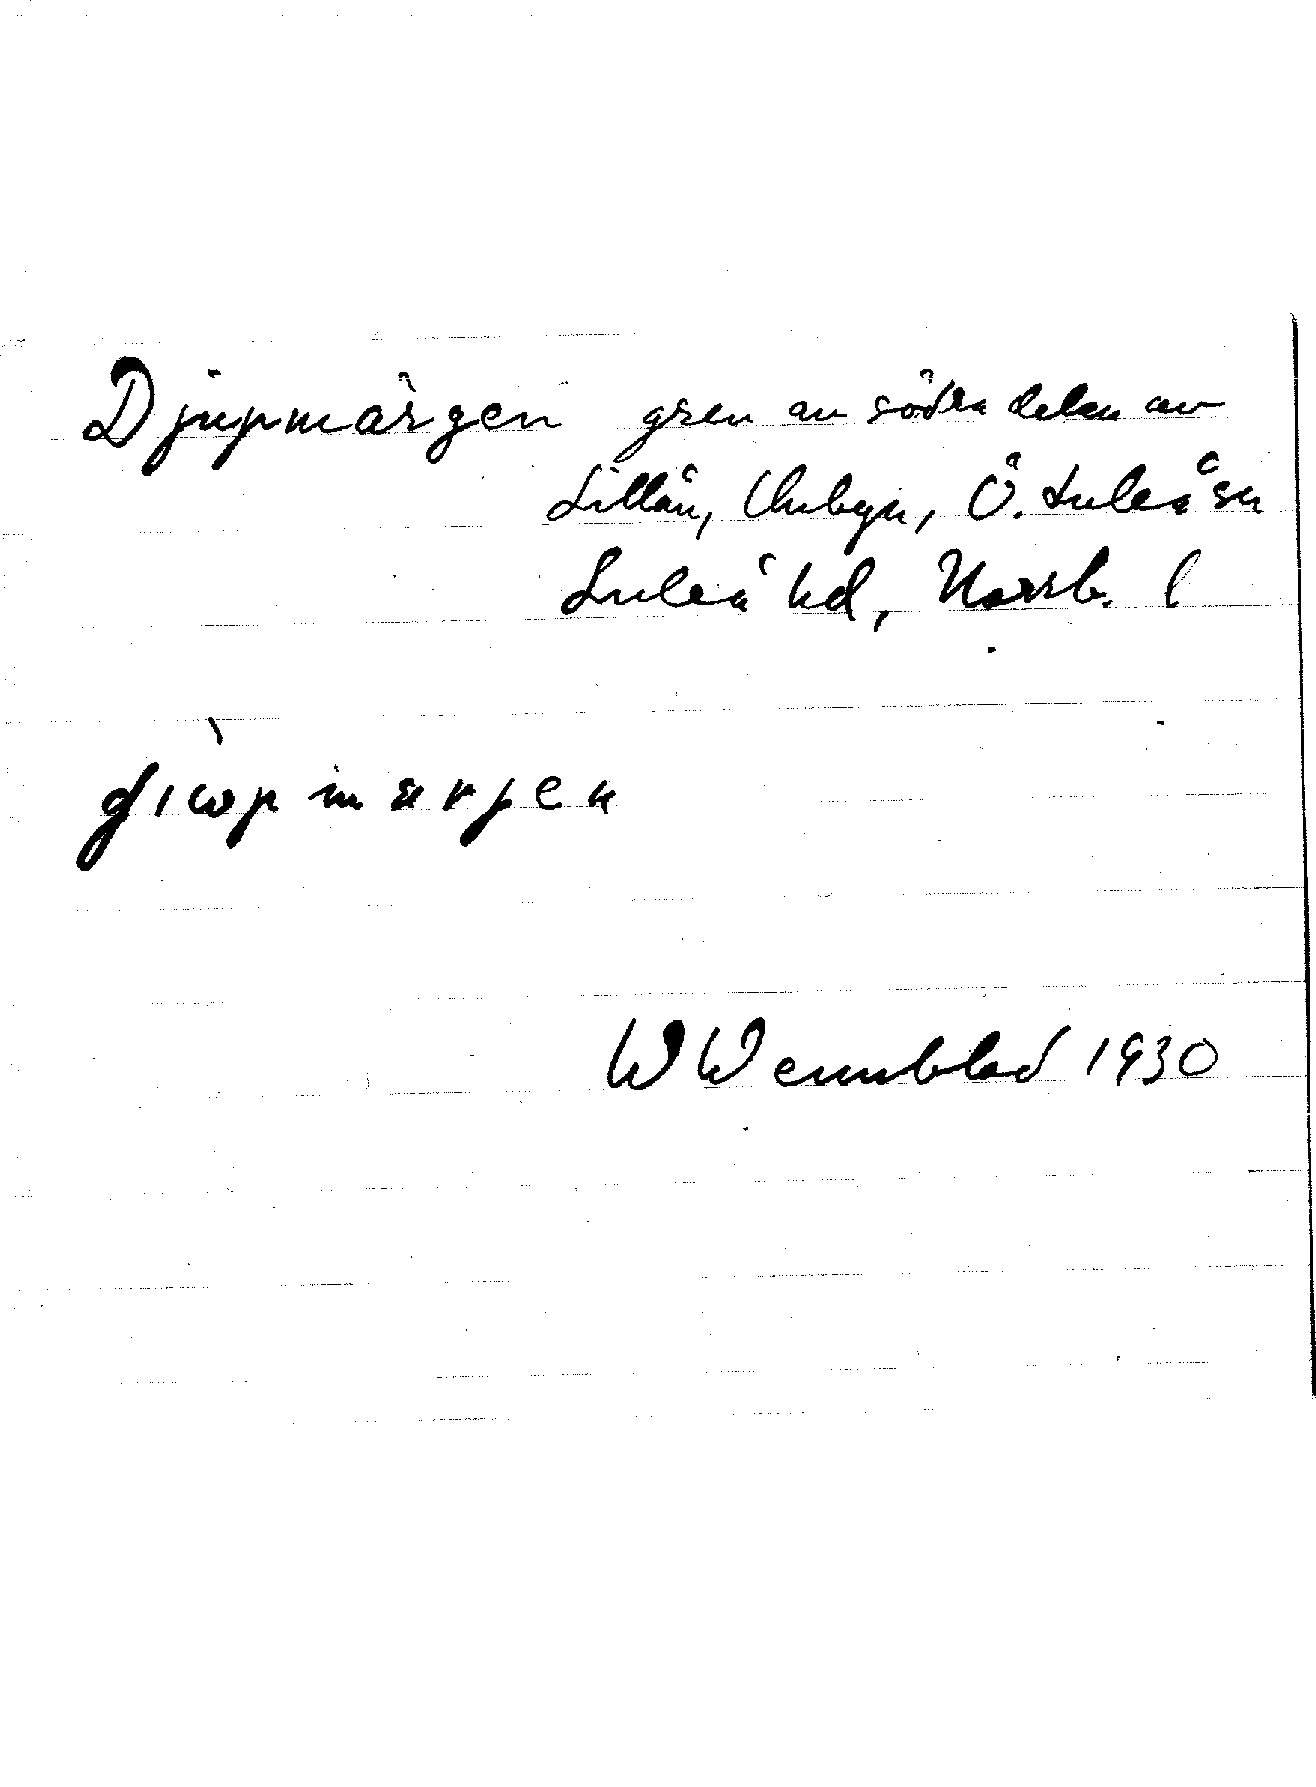 Djupmärgen gren av södra delen av
Lillån, Unbyn, Ö. Luleå sn
Luleå hd, Norrb. l
W Wennblad 1930